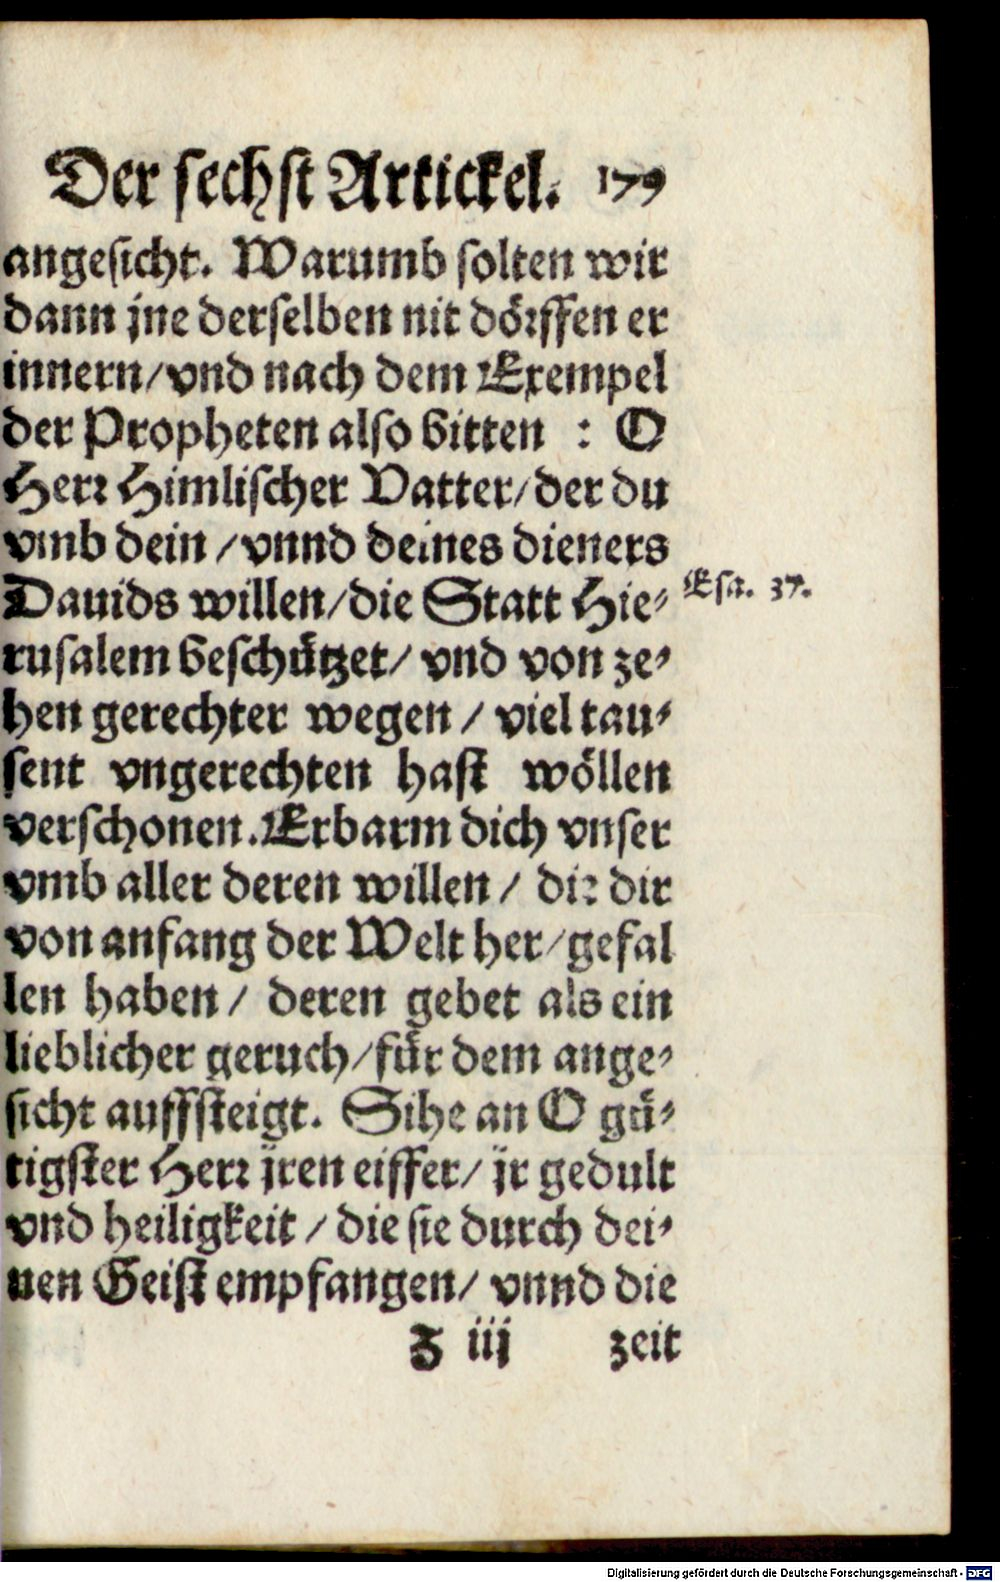 Der sechst Artickel. 179
angesicht. Warumb solten wir
dann jne derselben nit dörffen er
innern/vnd nach dem Exempel
der Propheten also bitten : O
Herr Himlischer Vatter/der du
vmb dein /vnnd deines dieners
Dauids willen/die Statt Hie-
Esa. 37.
rusalem beschützet/ vnd von ze-
hen gerechter wegen / viel tau-
sent vngerechten hast wöllen
verschonen. Erbarm dich vnser
vmb aller deren willen / die dir
von anfang der Welt her/gefal
len haben / deren gebet als ein
lieblicher geruch/für dem ange-
sicht auffsteigt. Sihe an O gü-
tigster Herr jren eiffer/ jr gedult
vnd heiligkeit / die sie durch dei-
nen Geist empfangen/ vnnd die
Z iij zeit
Digitalisierung gefördert durch die Deutsche Forschungsgemeinschaft - DFG